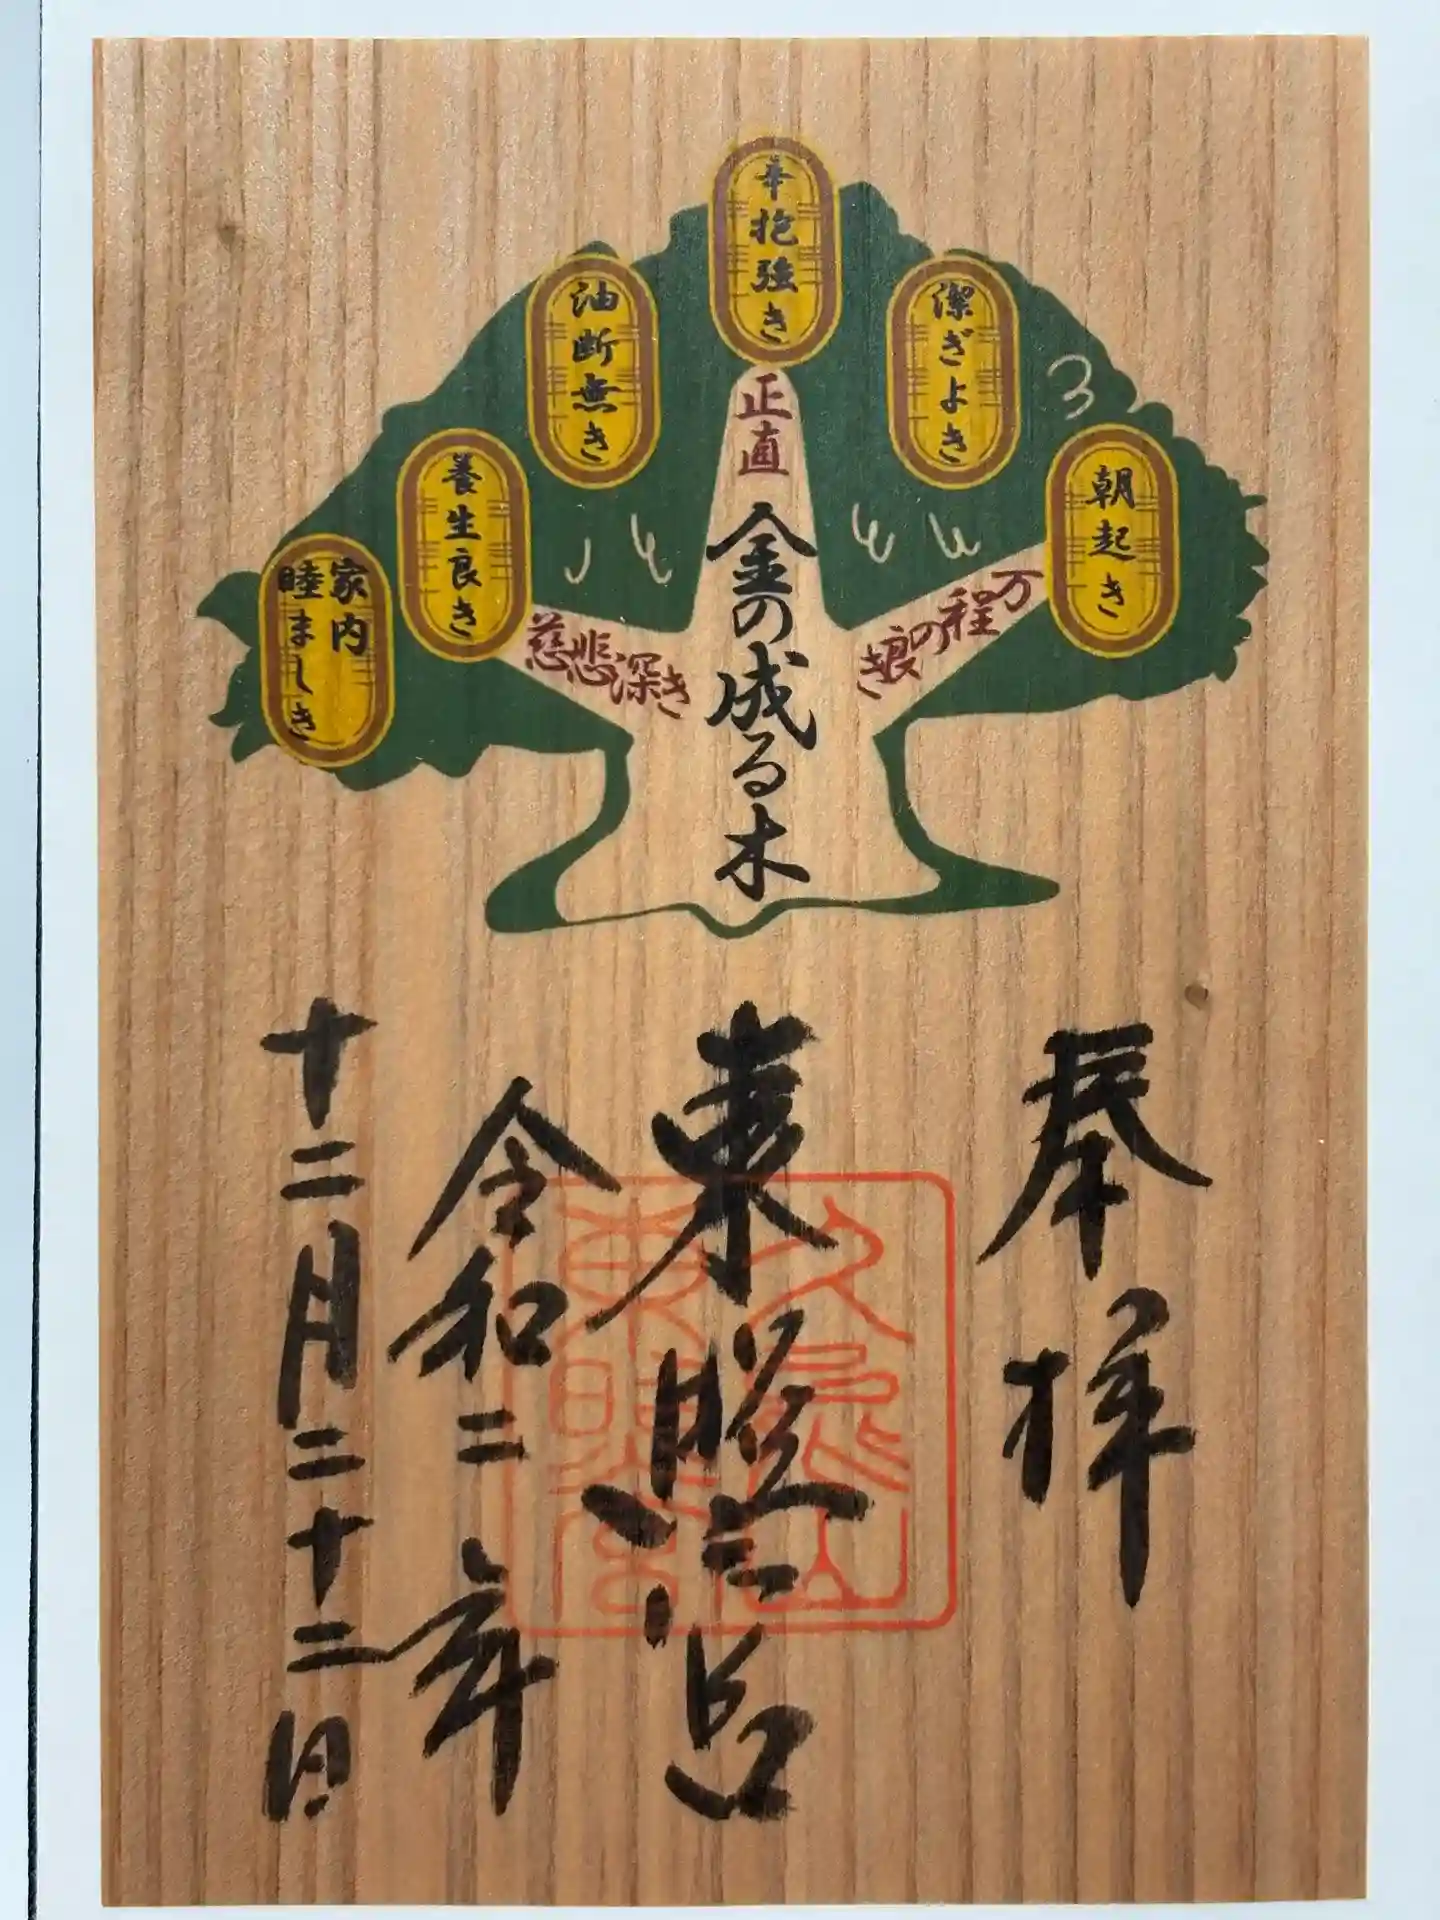 朝起き
潔ぎよき
辛抱強き
油断無き
養生良き
家内
睦ましき
万程の良き
正直
慈悲深き
金の成る木
奉拝
東照宮
令和二年
十二月二十二日
久能山
東照宮